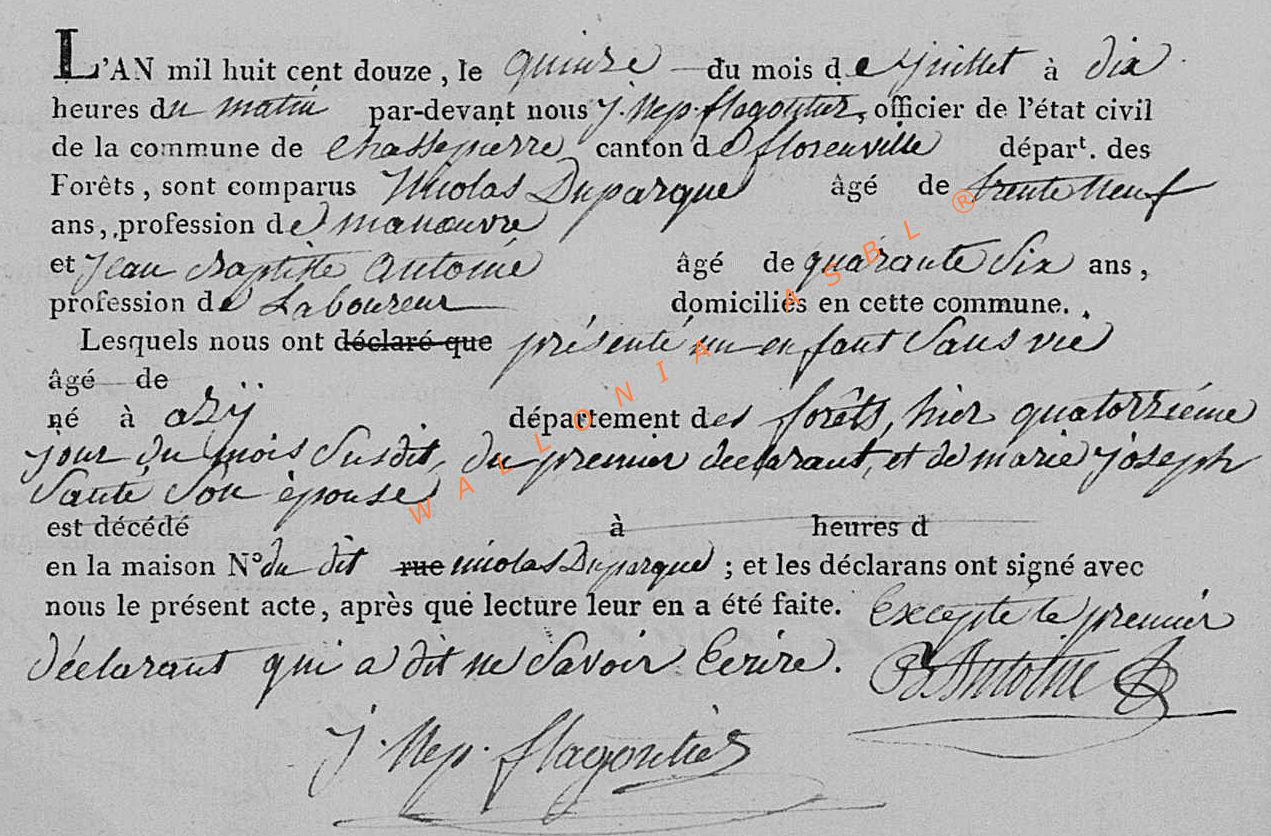 L'AN mil huit cent douze, le quinze du mois de juillet à dix
heures du matin par-devant nous J. Nep. flagontier, officier de l'état civil
de la commune de Chassepierre canton de florenville départ. des
Forêts, sont comparus Nicolas Duparque âgé de trente neuf
ans, profession de manœuvre
et Jean Baptiste Antoine âgé de quarante Six ans,
profession de Laboureur domiciliés en cette commune.
Lesquels nous ont déclaré que présenté un enfant Sans vie
âgé de
né à azÿ département des forêts, hier quatorzième
jour du mois Susdit, du premier declarant, et de marie joseph
Santé Son épouse
est décédé à heures d
en la maison N° du dit rue nicolas Duparque ; et les déclarans ont signé avec
nous le présent acte, après que lecture leur en a été faite. Excepté le premier
déclarant qui a dit ne Savoir Ecrire. B. Antoine
J. Nep. flagontier
WALLONIA ASBL ®